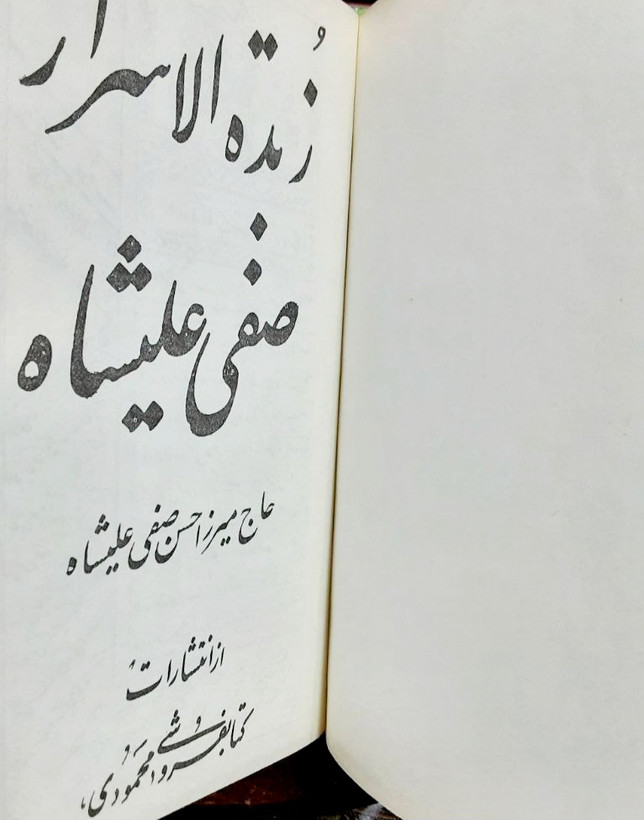 زُبدة الاسرار
صفی علیشاه
حاج میرزا حسن صفی علیشاه
از انتشارات
کتابفروشی محمودی،